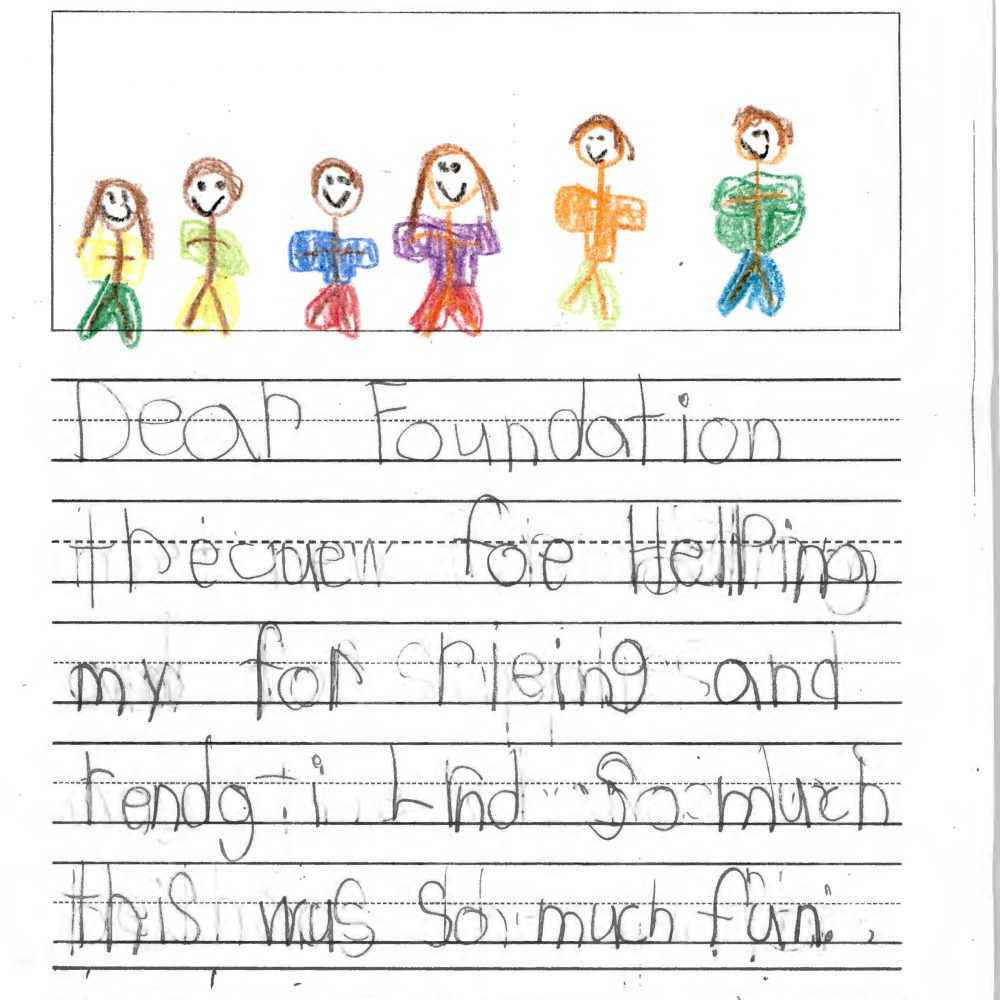 Dear Foundation
thecuew foe Hellping
my for rieing and
rendg i Lrnd so much
this was so much fun.